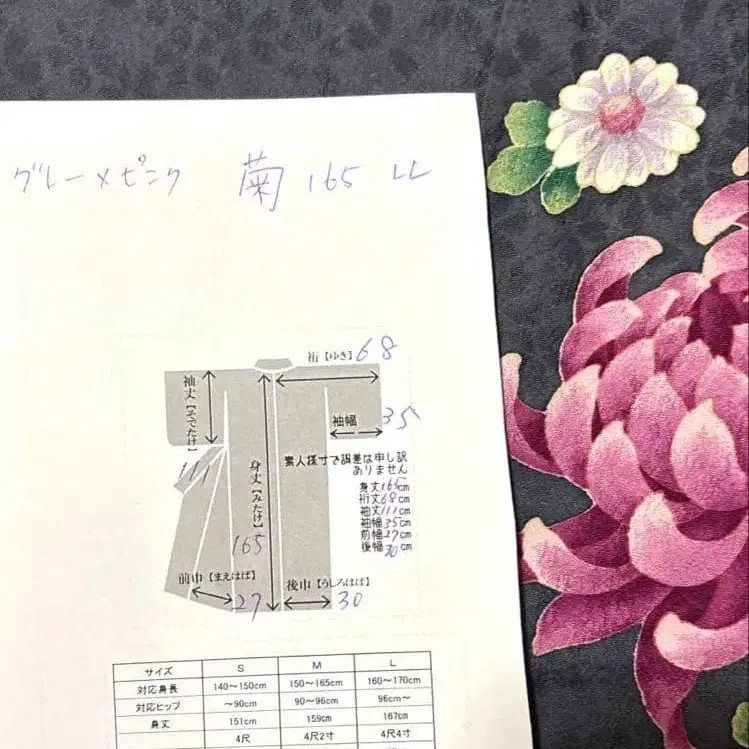 グレー×ピンク 菊 165 LL
裄【ゆき】68
袖丈【そでたけ】
111
袖幅 35
身丈【みたけ】
165
素人採寸で誤差は申し訳
ありません
身丈165cm
裄丈68cm
袖丈111cm
袖幅35cm
前幅27cm
後幅30cm
前巾【まえはば】
27
後巾【うしろはば】
30
サイズ S M L
対応身長 140～150cm 150～165cm 160～170cm
対応ヒップ ～90cm 90～96cm 96cm～
身丈 151cm 159cm 167cm
4尺 4尺2寸 4尺4寸